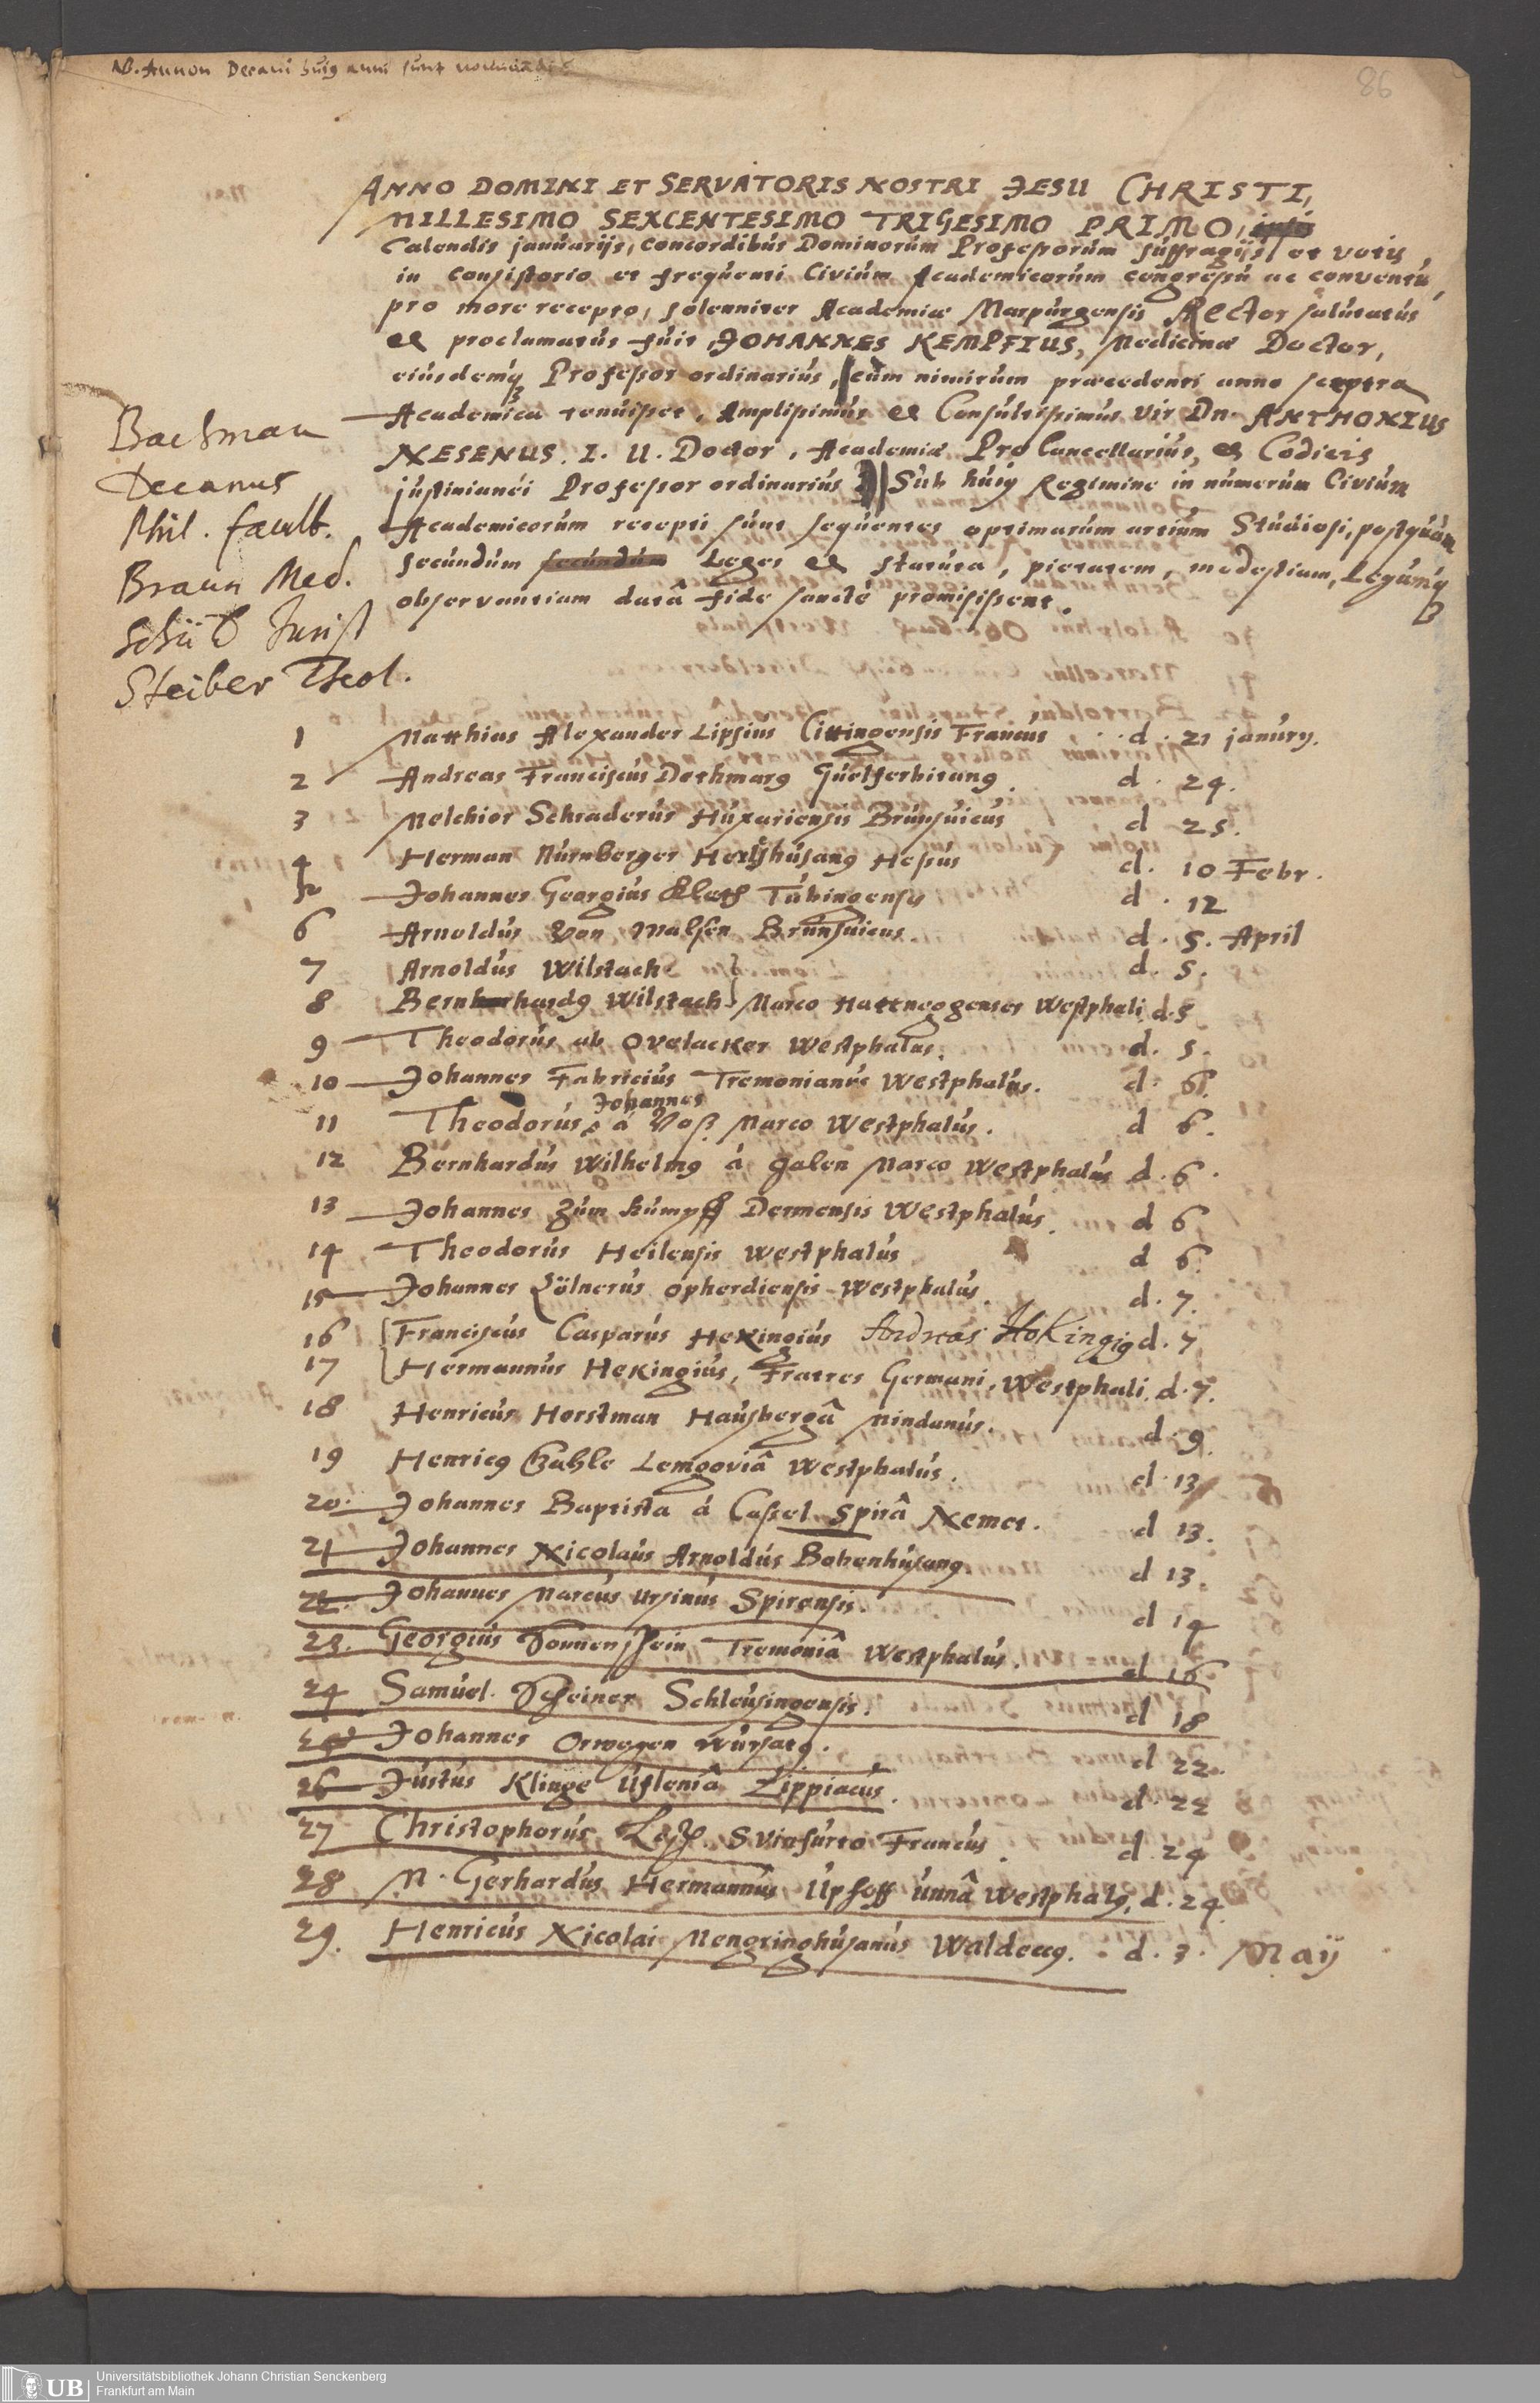 NB. Annon Decani huiꝰ anni sunt nominandi
86
ANNO DOMINI ET SERVATORIS NOSTRI JESU CHRISTI,
MILLESIMO SEXCENTESIMO TRIGESIMO PRIMO, ipsis
Calendis januarijs, concordibus Dominorum Professorum suffragijs et votis,
in consistorio et frequenti Civium Academicorum congressu ac conventu,
pro more recepto, solenniter Academiæ Marpurgensis Rector salutatus
et proclamatus fuit, JOHANNES KEMPFIUS, Medicinæ Doctor,
eiusdemq́ Professor ordinarius, cum nimirum præcedenti anno sceptra
Academica tenuisset, Amplissimus et Consultissimus Vir Dn. ANTHONIUS
NESENUS. I. U. Doctor, Academiæ ProCancellarius, et Codicis
justinianei Professor ordinarius Sub huiꝰ Regimine in numerum Civium
Academicorum recepti sunt sequentes optimarum artium Studiosi, postquam
secundum secundum Leges et statuta, pietatem, modestiam, Legumq́
observantiam datâ fide sanctè promisissent.
Bachman
Decanus
Phil. facult.
Braun Med.
Schüts Jurist
Steiber Theol.
1 Matthias Alexander Lipsius Cittingensis Francus, d. 21 janury.
2 Andreas Franciscus Dethmarꝰ Guelferbitanꝰ. d. 24.
3 Melchior Schraderus Huxariensis Brunsuicus d 25.
4 Herman Nurnberger Hershusanꝰ Hessus d. 10 Febr.
5 Johannes Georgius Tubingensis d. 12
6 Arnoldus Von Malsen Brunsuicus. d. 5. April
7 Arnoldus Wilstach d. 5.
8 Bernhardꝰ Wilstach Marco Hattneggenses Westphali. d. 5
9 Theodorus ab Ovelacker Westphalus. d. 5.
10 Johannes Fabricius Tremonianus Westphalus. d. 6.
Johannes
11 Theodorus á Voß Marco Westphalus. d 6.
12 Bernhardus Wilhelmꝰ á Galen Marco Westphalus d. 6.
13 Johannes zum kumpff Dermensis Westphalus. d 6
14 Theodorus Heilensis Westphalus d 6.
15 Johannes Zölnerus Opherdiensis Westphalus. d. 7.
16 Franciscus Casparus Hekingius Andreas Hokingiꝰ d. 7
17 Hermannus Hekingius, Fratres Germani, Westphali. d. 7.
18 Henricus Horstman Hausbergâ Mindanus. d. 9.
19 Henricꝰ Lemgoviâ Westphalus. d. 13
20. Johannes Baptista á Cassel Spirâ Nemet. d 13.
21 Johannes Nicolaus Arnoldus Bobenhusanꝰ d 13.
22. Johannes Marcus Ursinus Spirensis. d 14
23. Georgius Sonnenschein Tremoniâ Westphalus. d 16
24 Samuel Scheiner Schleusingensis. d 18
25 Johannes Orwegen Wursatꝰ. d 22.
26 Justus Klinge Ufleniâ Lippiacus. d. 22
27 Christophorus Svinfurto Francus. d. 24
28 M. Gerhardus Hermannus Uphoff Unnâ Westphalꝰ, d. 24.
29. Henricus Nicolai Mengringhusanus Waldecꝰ. d. 3. Maij
UB
Universitätsbibliothek Johann Christian Senckenberg
Frankfurt am Main